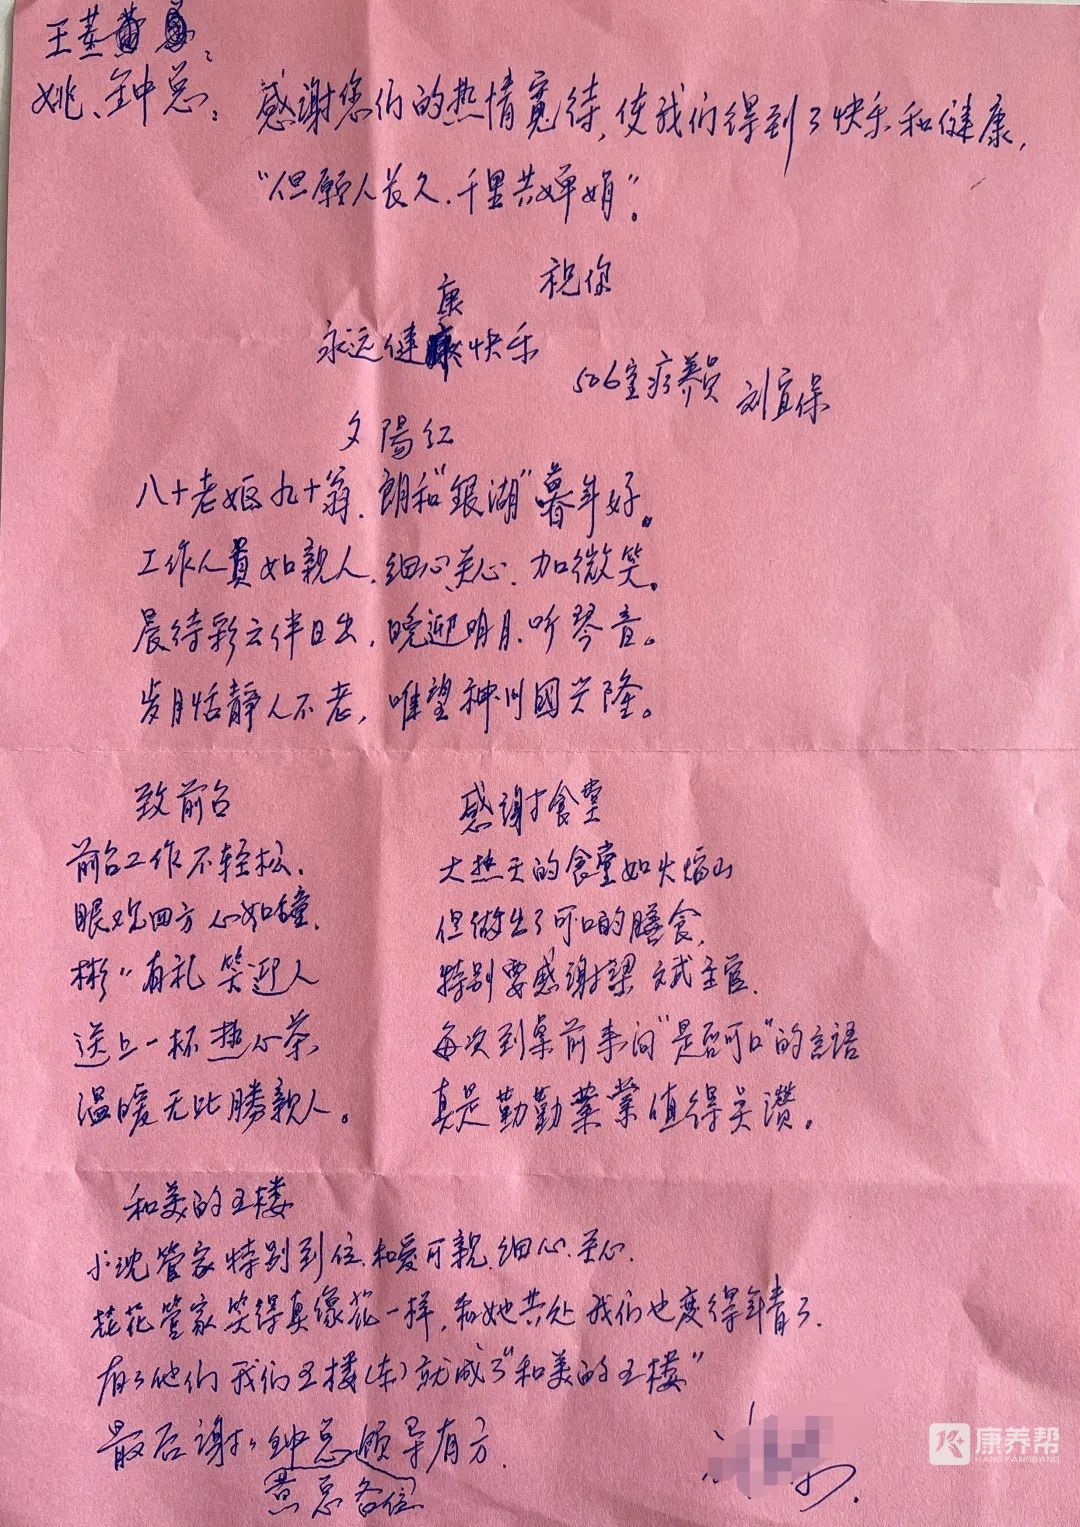 姚、钟总：感谢您们的热情宽待，使我们得到了快乐和健康，
“但愿人长久．千里共婵娟”。
祝你
康
永远健康快乐
506室疗养员 刘宜保
夕陽红
八十老妪九十翁．朗和“銀湖”暮年好。
工作人員如親人．细心、关心．加微笑。
晨待彩云伴日出，晚迎明月．听琴音。
岁月恬靜人不老，唯望神州國兴隆。
致前台
前台工作不轻松．
眼观四方 心如瞳．
彬〃有礼 笑迎人
送上一杯热心茶，
温暖无比勝親人。
感谢食堂
大热天的食堂如火焰山
但做出了可口的膳食，
特别要感谢梁 斌主官．
每次到桌前来问“是否可口”的言語
真是勤勤業業值得点讚。
和美的五楼
小沈管家特别到位．和爱可親．细心．关心．
花花管家笑得真像花一样，和她共处 我们也变得年青了．
有了他们 我们五楼(东)就成了“和美的五楼”
最后谢谢钟总领导有方．
黄总各位
康养帮
KANGYANGBANG